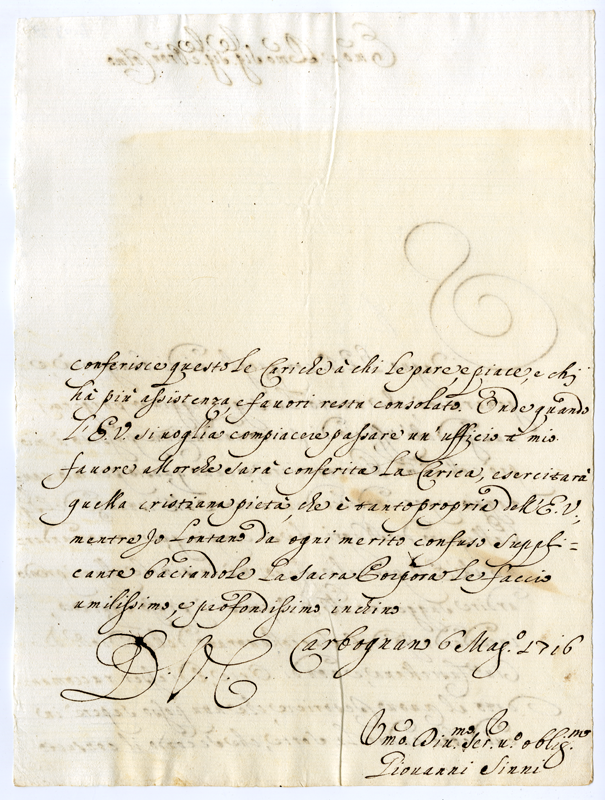 conferisce questo le Cariche à chi le pare, e piace, e chi
hà più assistenza, e favori resta consolato. Onde quando
l'E.V. si voglia compiacere passare un' uffizio à mio
favore allorche sarà conferita la Carica, esercitarà
quella cristiana pietà, che è tanto propria dell'E.V.,
mentre Io lontano da ogni merito confuso suppli=
cante baciandole la sacra Porpora le faccio
umilissimo, e profondissimo inchino
D. V. E. Carbognano 6 Mag.o 1716
Umo. Diu.mo Ser.e v.o oblig.mo
Giovanni Sinni